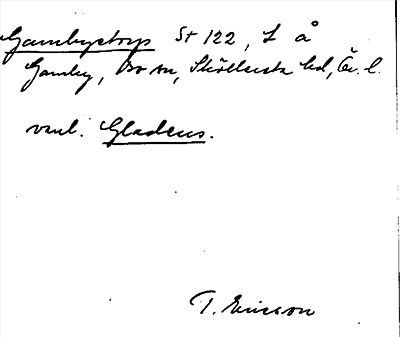 Gambystorp St 122, L å
Gamby, Bo sn, Sköllersta hd, Ör. l.
vanl. Gladens.
T. Ericson